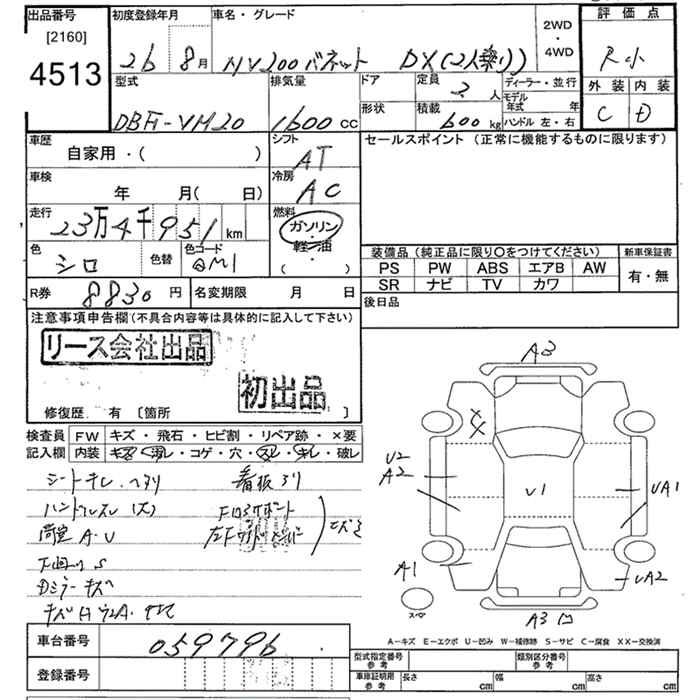 出品番号
[2160]
4513
初度登録年月
26 8月
車名・グレード
NV200バネット DX(2人乗り)
2WD
・
4WD
評価点
R小
外装 内装
C D
型式
DBF-VM20
排気量
1600 cc
ドア
形状
定員
2 人
積載
600 kg
ディーラー・並行
モデル年式 年
ハンドル 左・右
車歴
自家用・( )
シフト
AT
セールスポイント (正常に機能するものに限ります)
車検
年 月( 日)
冷房
AC
走行
23万4千951 km
燃料
ガソリン
軽油
( ・ )
色
シロ
色替
色コード
QM1
装備品(純正品に限り〇をつけてください)
PS PW ABS エアB AW
SR ナビ TV カワ
新車保証書
有・無
R券
8830 円
名変期限 月 日
後日品
注意事項申告欄(不具合内容等は具体的に記入して下さい)
リース会社出品
初出品
修復歴・有 〔箇所 〕
検査員
記入欄
FW キズ・飛石・ヒビ割・リペア跡・×要
内装 キズ・汚レ・コゲ・穴・スレ・キレ・破レ
シートキレ、ヘタリ
看板アリ
ハンドルスレ(大)
荷室 A・U
下回り S
Dミラーキズ
A3
XX
U2
A2
U1
UA1
A1
UA2
A3
スペア
A-キズ E-エクボ U-凹み W-補修跡 S-サビ C-腐食 XX-交換済
車台番号
059796
登録番号
型式指定番号
参考
類別区分番号
参考
車庫証明用
参考
長さ cm
幅 cm
高さ cm